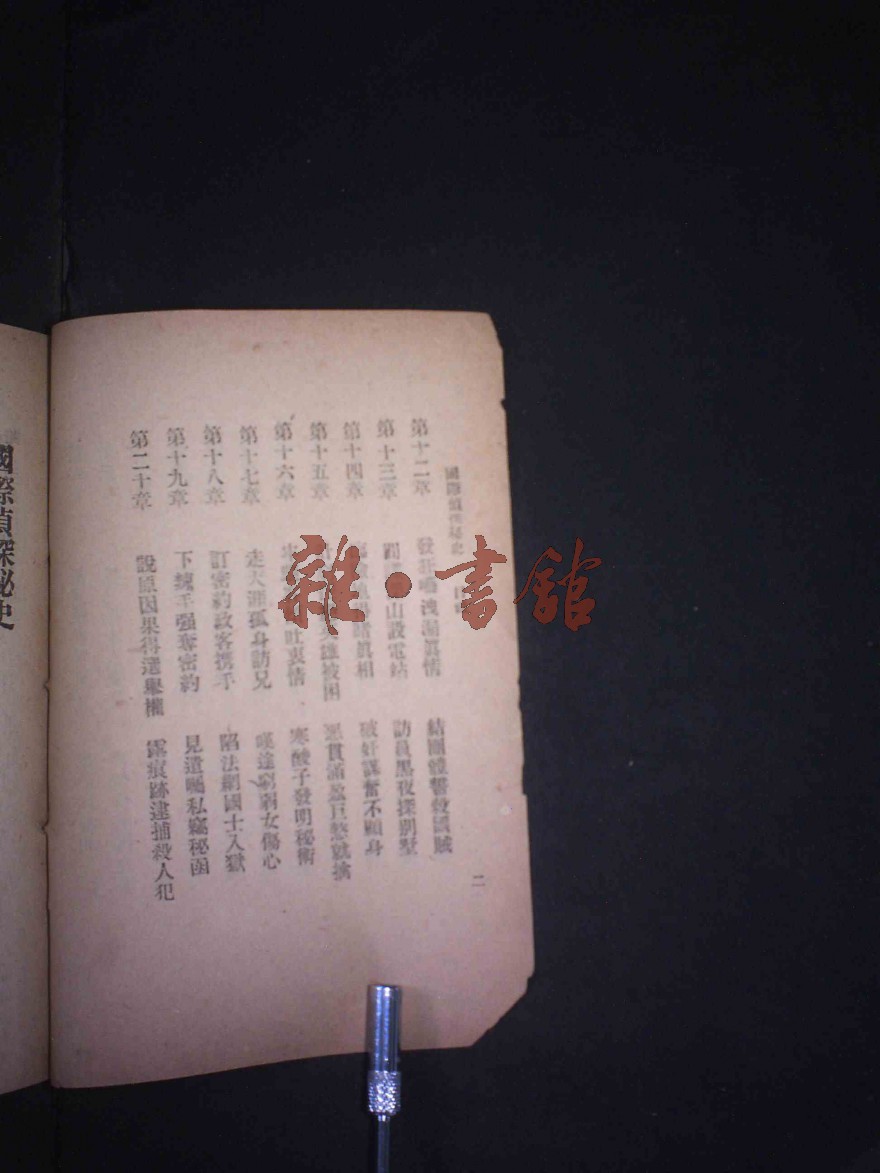 國際偵探秘史
第十二章 發狂 洩漏眞情 結團體誓救國賊
第十三章 山設電站 訪員黑夜探別墅
第十四章 眞相 破奸謀奮不顧身
第十五章 英雄被困 惡貫滿盈巨憝就擒
第十六章 吐衷情 寒酸子發明秘術
第十七章 走天涯孤身訪兄 嘆途窮弱女傷心
第十八章 訂密約政客携手 陷法網國士入獄
第十九章 下辣手强奪密約 見遺囑私竊秘函
第二十章 說原因果得選舉權 露痕跡逮捕殺人犯
二
國際偵探秘史
雜·書館